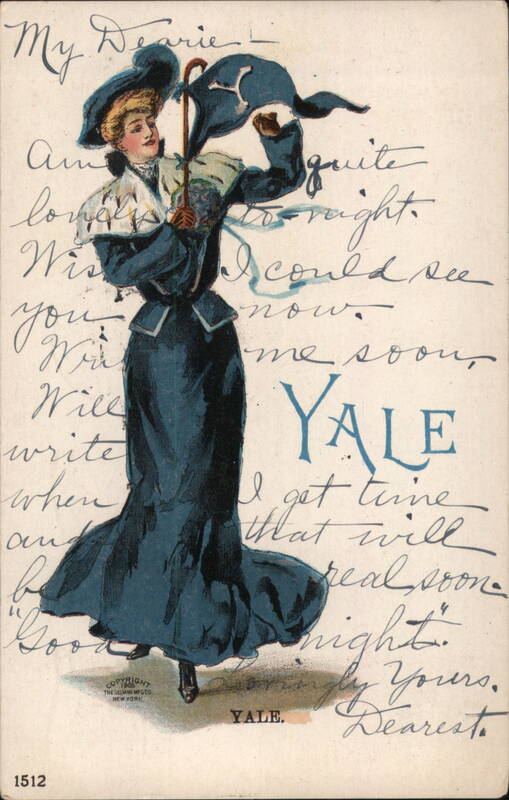 My Dearie -
Y
Am quite
lonely to-night.
Wish I could see
you now.
Write me soon,
Will
YALE
write
when I get time
and that will
be real soon.
"Good night".
Lovingly Yours.
Dearest.
COPYRIGHT
1905
THE ULLMAN MFG CO
NEW YORK
YALE.
1512